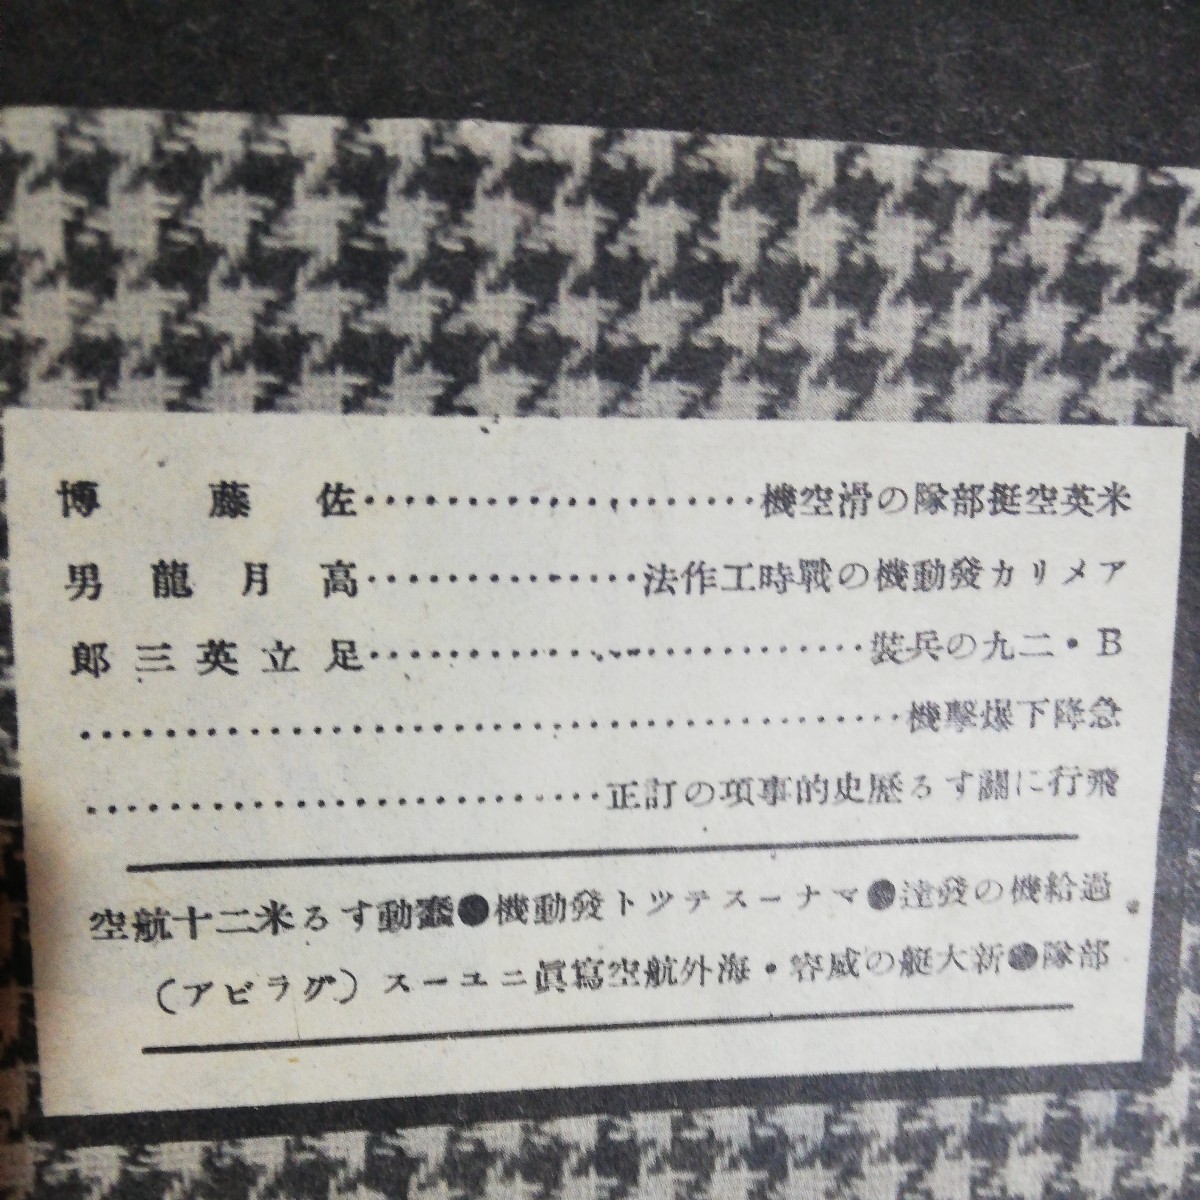 米英空挺部隊の滑空機…………………佐藤博
アメリカ發動機の戰時工作法……………高月龍男
B・二九の兵裝………………………足立英三郎
急降下爆擊機………………………………………
飛行に關する歷史的事項の訂正…………………………
過給機の發達●マナーステツト發動機●蠢動する米二十航空
部隊●新大艇の威容・海外航空寫眞ニユース(グラビア)